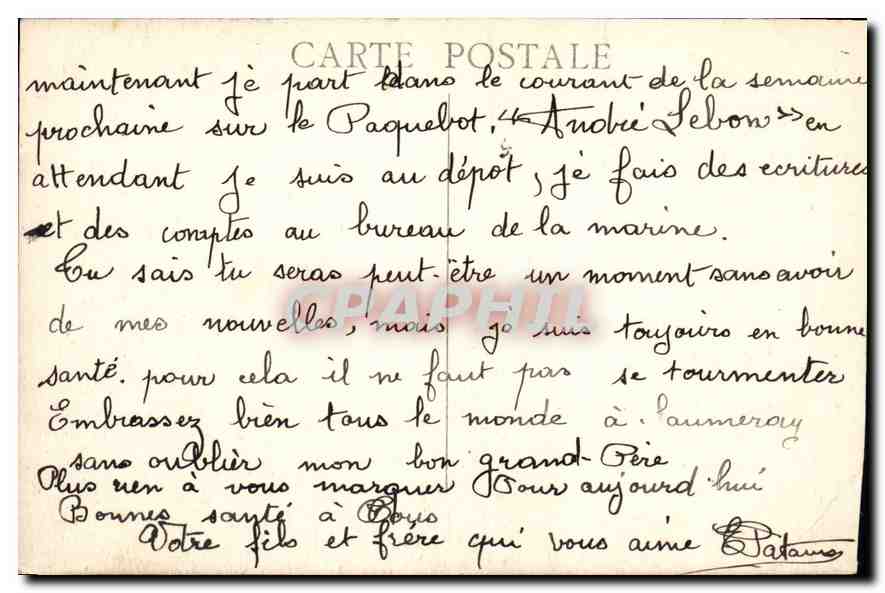 CARTE POSTALE
maintenant jè part dans le courant de la semaine
prochaine sur le Paquebot. "André Lebon" en
attendant je suis au dépot, jè fais des ecritures
et des comptes au bureau de la marine.
Tu sais tu seras peut-être un moment sans avoir
de mes nouvelles, mais jè suis toujours en bonne
santé. pour cela il ne faut pas se tourmenter
Embrassez bièn tous le monde à Saumeray
sans oublièr mon bon grand-Père
Plus rien à vous marquer Pour aujourd'hui
Bonnes santé à Tous
Votre fils et frère qui vous aime
CPAPHIL